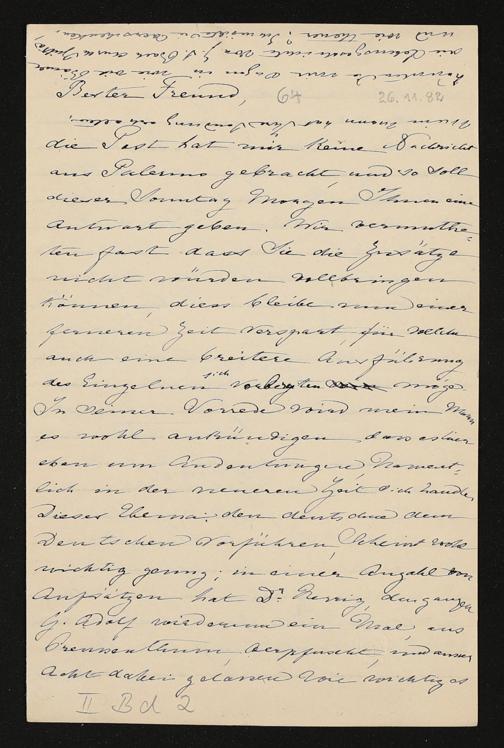 Bester Freund, 64 26.11.82
die Post hat mir keine Nachricht
aus Palermo gebracht, und so soll
dieser Sonntag Morgen Ihnen eine
Antwort geben. Wir vermuthe-
ten fast dass Sie die Zusätze
nicht würden vollbringen
können, diess bleibe nun einer
ferneren Zeit verspart, für welche
auch eine breitere Ausführung
des Einzelnen sich vorbehalten möge.
In seiner Vorrede wird mein Mann
es wohl ankündigen dass es hier
eben um Andeutungen, nament-
lich in der neueren Zeit sich handle.
Dieses Thema: den deutschen dem
Deutschen vorführen, scheint wohl
wichtig genug; in einer Anzahl von
Aufsätzen hat Dr
G. Adolf wiederum ein Mal, aus
Preussenthum, verpfuscht, und ausser
Acht dabei gelassen wie wichtig es
II Bd 2